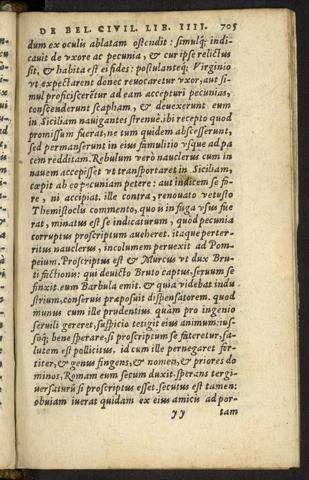 DE BEL. CIVIL. LIB. IIII. 705
dum ex oculis ablatam ostendit: simulq́; indi-
cauit de vxore ac pecunia, & cur ipse relictus
sit, & habita est ei fides: postulanteq́; Virginio
vt expectarent donec reuocaretur vxor, aut si-
mul proficiscerẽtur ad eam accepturi pecunias,
conscenderunt scapham, & deuexerunt eum
in Siciliam nauigantes strenuè. ibi recepto quod
promissum fuerat, ne tum quidem abscesserunt,
sed permanserunt in eius famulitio vsque ad pa
cem redditam. Rebulum verò nauclerus cum in
nauem accepisset vt transportaret in Siciliam,
cœpit ab eo pecuniam petere: aut indicem se fo-
re, ni accipiat. ille contra, renouato vetusto
Themistoclis commento, quo is in fuga vsus fue
rat, minatus est se indicaturum, quòd pecunia
corruptus proscriptum aueheret. itaque perter-
ritus nauclerus, incolumem peruexit ad Pom-
peium. Proscriptus est & Murcus vt dux Bru-
ti factionis: qui deuicto Bruto captus, seruum se
finxit. eum Barbula emit. & quia videbat indu
strium, conseruis præposuit dispensatorem. quod
munus cum ille prudentius quàm pro ingenio
seruili gereret, suspicio tetigit eius animum: ius-
soq́; bene sperare, si proscriptum se fateretur, sa-
lutem est pollicitus, id cum ille pernegaret for-
titer, & genus fingens, & nomen, & priores do
minos, Romam eum secum duxit. sperans tergi-
uersaturũ si proscriptus esset. secutus est tamen:
obuiam iuerat quidam ex eius amicis ad por-
yy tam